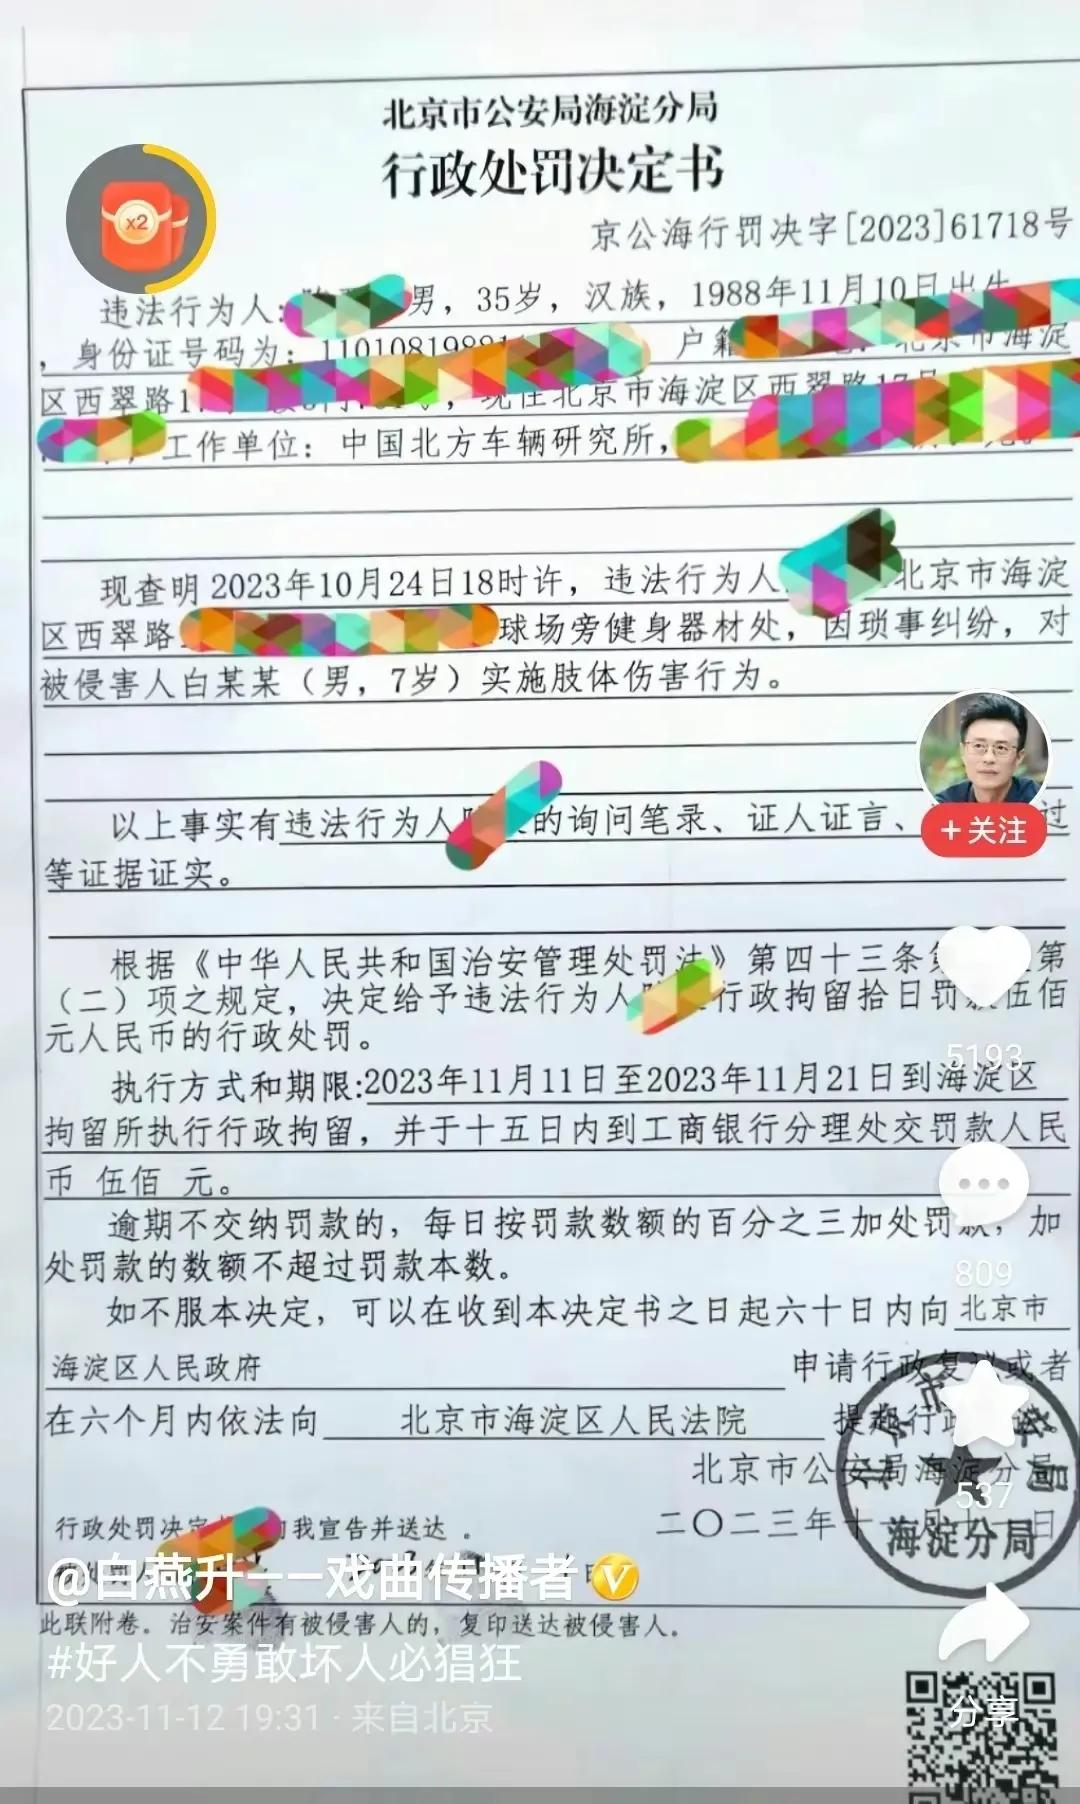 北京市公安局海淀分局
行政处罚决定书
京公海行罚决字[2023]61718号
x2
违法行为人: 男，35岁，汉族，1988年11月10日出生
，身份证号码为：1101081988 户籍 北京市海淀
区西翠路1 ，现住北京市海淀区西翠路17号
工作单位：中国北方车辆研究所，
现查明2023年10月24日18时许，违法行为人 北京市海淀
区西翠路 球场旁健身器材处，因琐事纠纷，对
被侵害人白某某（男，7岁）实施肢体伤害行为。
+关注
以上事实有违法行为人 的询问笔录、证人证言、 过
等证据证实。
根据《中华人民共和国治安管理处罚法》第四十三条第 第
（二）项之规定，决定给予违法行为人 行政拘留拾日罚款伍佰
元人民币的行政处罚。
5193
执行方式和期限:2023年11月11日至2023年11月21日到海淀区
拘留所执行行政拘留，并于十五日内到工商银行分理处交罚款人民
币 伍佰 元。
逾期不交纳罚款的，每日按罚款数额的百分之三加处罚款，加
处罚款的数额不超过罚款本数。
809
如不服本决定，可以在收到本决定书之日起六十日内向北京市
海淀区人民政府 申请行政复议或者
在六个月内依法向 北京市海淀区人民法院 提起行政
北京市公安局海淀分局
537
二〇二三年十一月十一日
海淀分局
行政处罚决定 向我宣告并送达 。
@白燕升——戏曲传播者
此联附卷。治安案件有被侵害人的，复印送达被侵害人。
#好人不勇敢坏人必猖狂
2023-11-12 19:31 · 来自北京
分享